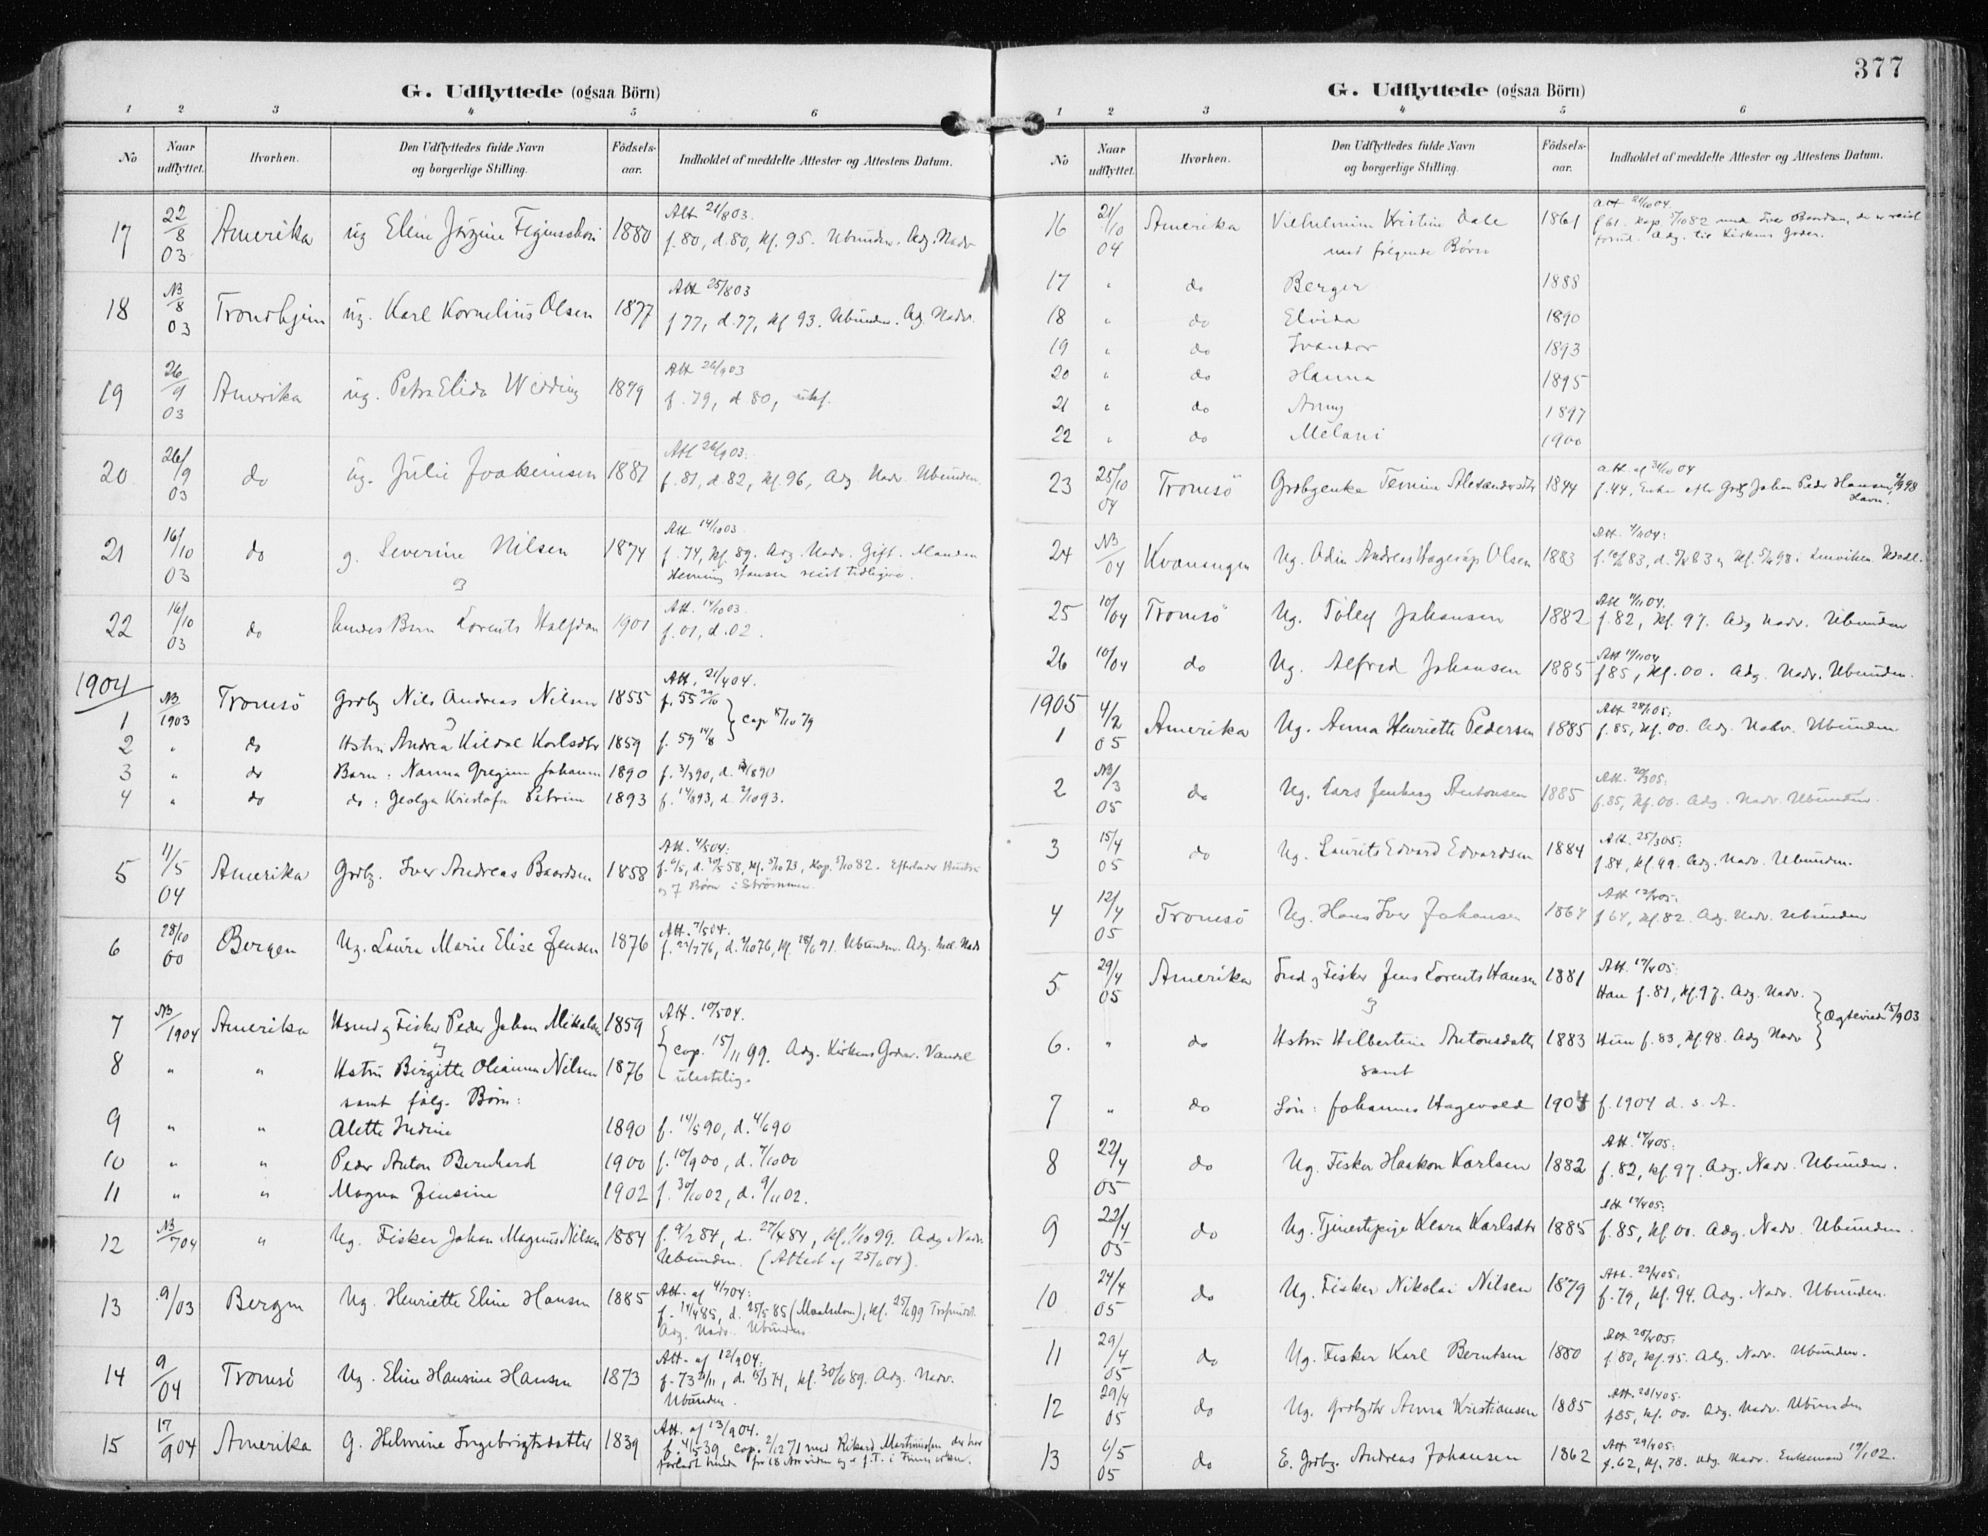 377
G. Udflyttede (ogsaa Börn)
1 2 3 4 5 6
No Naar udflyttet. Hvorhen. Den Udflyttedes fulde Navn og borgerlige Stilling. Födsels-aar. Indholdet af meddelte Attester og Attestens Datum.
17 22/8 03 Amerika ug Eline Jörgine 1880 Att 21/8 03.
f. 80, d. 80, kf. 95. Ubunden. Adg. Nadv
18 NB/8 03 Trondhjem ug. Karl Kornelius Olsen 1877 Att 25/8 03
f 77, d. 77, kf 93. Ubunden. Adg. Nadv.
19 26/9 03 Amerika ug. Petra Elida Wedding 1879 Att 26/9 03
f. 79, d. 80, ukf.
20 26/9 03 do ug. Julie Joakimsen 1881 Att 26/9 03.
f. 81, d. 82, kf. 96, Adg. Nadv. Ubunden.
21 16/10 03 do g. Severine Nilsen 1874 Att 14/10 03.
f. 74, kf. 89. Adg. Nadv. Gift. Manden
Henning Hansen reist tidligere.
og
22 16/10 03 do hendes Barn Lorents Halfdan 1901 Att. 14/10 03.
f. 01, d. 02.
1904
1 NB/1903 Tromsö Grdbg Nils Andreas Nilsen 1855 Att. 21/4 04.
f. 55 cap
2 " do Hstru Andrea Kildal Karlsdtr 1859 f. 59 14/8
3 " do Barn: Nanna Johanna 1890 f. 3/3 90, d.
4 " do do: Kristofa Petrine 1893 f. 14/8 93, d. 2/10 93.
5 11/5 04 Amerika Grdbg. Iver Andreas Baardsen 1858 Att. 4/5 04:
kf. 5/10 73, kop. 5/10 82. Efterlader Hustru
og 7 Börn i Strömmen.
6 28/10 00 Bergen Ug. Laura Marie Elise Jensen 1876 Att. 7/5 04:
f. 22/7 76, d. 76, kf. 91. Ubunden. Adg. Nadv
7 NB/1904 Amerika Hsmd og Fisker Peder Johan Mikalsen 1859 Att. 10/5 04.
og cop. 15/11 99. Adg. Kirkens Goder. Vandel
ulastelig.
8 " " Hstru Birgitte Oleanna Nilsen 1876
samt fölg. Börn:
9 " " Alette Indine 1890 f. 14/5 90, d. 4/6 90
10 " " Peder Anton Bernhard 1900 f. 10/9 00, d. 7/10 00
11 " " Magna Jensine 1902 f. 30/10 02, d. 9/11 02.
12 NB/7 04 " Ug. Fisker Johan Magnus Nilsen 1884 f. 9/2 84, d. 27/4 84, kf. 1/10 99. Adg Nadv
Ubunden. (Attest af 25/6 04).
13 9/03 Bergen Ug. Henriette Eline Hansen 1885 Att. af 4/7 04:
f. 14/4 85, d. 25/5 85 (Maalselven), kf. 25/6 99
Adg. Nadv. Ubunden
14 9/04 Tromsö Ug. Eline Hansine Hansen 1873 Att. af 12/9 04.
f. 73, d. 15/3 74, kf. 30/6 89. Adg. Nadv.
Ubunden.
15 17/9 04 Amerika g. Helmine Ingebrigtsdatter 1839 Att. af 13/9 04.
f. 4/5 39, cop. 2/12 71 med Rikard Martinussen der har
forladt hende for 18 Aar siden og e. f. T. i Finmarken.
G. Udflyttede (ogsaa Börn)
1 2 3 4 5 6
No Naar udflyttet. Hvorhen. Den Udflyttedes fulde Navn og borgerlige Stilling. Födsels-aar. Indholdet af meddelte Attester og Attestens Datum.
16 21/10 04 Amerika Vilhelmine Kristine Dale 1861 Att 21/10 04.
med fölgende Börn f. 61. kop. 5/10 82 med Iver Baardsen, der er reist
forud. Adg. til Kirkens Goder.
17 " do Berger 1888
18 " do Elvida 1890
19 " do Ivander 1893
20 " do Hanna 1895
21 " do Anny 1897
22 " do Melani 1900
23 25/10 04 Tromsö Grdbgenke Alexandersdtr 1844 Att. af 04
f. 44, Enke efter Grdbg Johan Peder Hansen,
24 NB/04 Kvænangen Ug. Odin Andreas Olsen 1883 Att. 04:
f. 83, d. 83, kf. 98 i Lenviken
25 10/04 Tromsö Ug. Tolley Johansen 1882 Att 04.
f. 82, kf. 97. Adg Nadv. Ubunden
26 10/04 do Ug. Alfred Johansen 1885 Att 04
f 85, kf. 00. Adg. Nadv. Ubunden.
1905
1 4/2 05 Amerika Ug. Anna Henriette Pedersen 1885 Att 28/1 05:
f. 85, kf. 00. Adg. Nadv. Ubunden
2 NB/3 05 do Ug. Lars Jenberg Antonsen 1885 Att. 20/3 05:
f. 85, kf. 00. Adg. Nadv. Ubunden.
3 15/4 05 do Ug. Laurits Edvard Edvardsen 1884 Att. 25/3 05:
f. 84, kf. 99. Adg. Nadv. Ubunden.
4 12/4 05 Tromsö Ug. Hans Iver Johansen 1864 Att. 12/4 05:
f 64, kf. 82. Adg. Nadv. Ubunden
5 29/4 05 Amerika Ind og Fisker Jens Lorents Hansen 1881 Att. 17/4 05:
og Han f. 81, kf. 97. Adg. Nadv.
Ægteviede 15/9 03
6. " do Hstru Hilbertine Antonsdatter 1883 Hun f. 83, kf. 98. Adg Nadv
samt
7 " do Sön: Johannes Hagevold 1904 f. 1904 d. s. A.
8 22/4 05 do Ug. Fisker Haakon Karlsen 1882 Att. 17/4 05:
f. 82, kf. 97. Adg. Nadv. Ubunden.
9 22/4 05 do Ug. Tjenestepige Klara Karlsdtr 1885 Att 17/4 05:
f. 85, kf. 00. Adg. Nadv. Ubunden.
10 24/4 05 do Ug. Fisker Nikolai Nilsen 1879 Att. 22/4 05:
f. 79, kf. 94. Adg. Nadv. Ubunden.
11 29/4 05 do Ug. Fisker Karl Berntsen 1880 Att 28/4 05:
f. 80, kf. 95. Adg. Nadv. Ubunden.
12 29/4 05 do Ug. Grdbgdtr Anna Kristiansen 1885 Att. 28/4 05.
f 85, kf. 00. Adg. Nadv. Ubunden
13 6/5 05 do E. Grdbg. Andreas Johansen 1862 Att 29/4 05:
f. 62, kf. 78. Adg. Nadv. Enkemand 19/1 02.